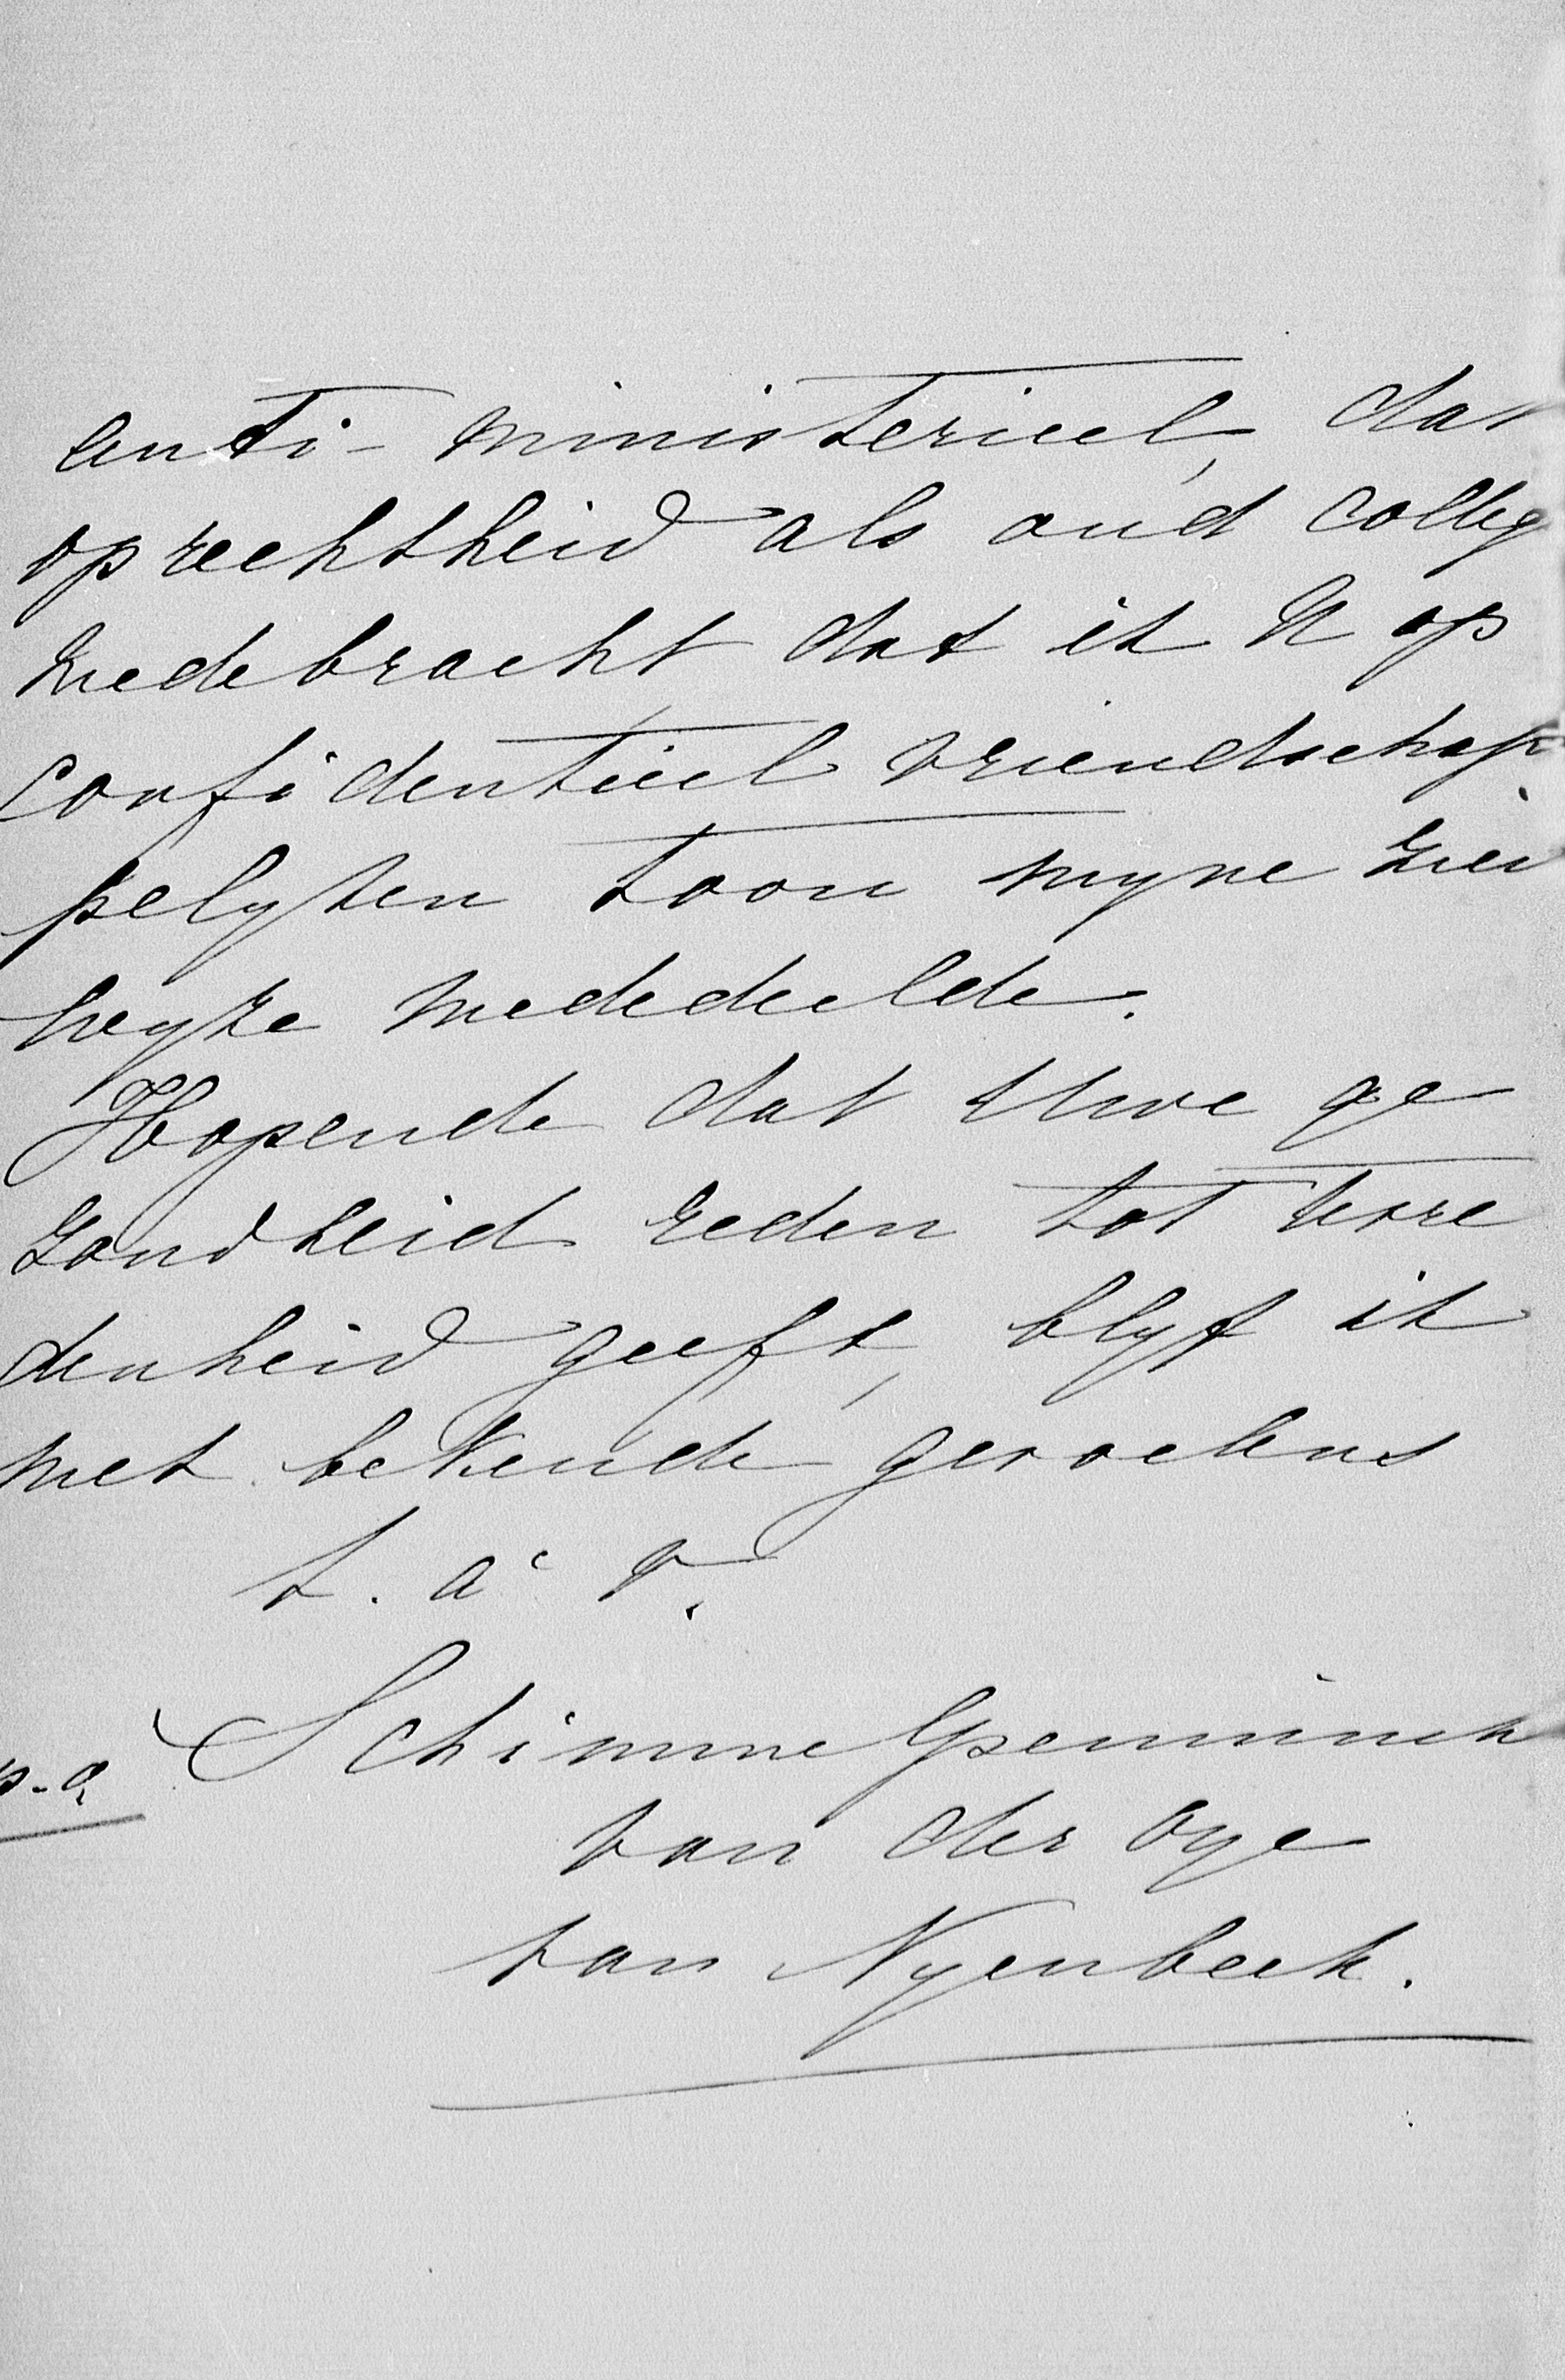 anti-ministerieel, dat
oprechtheid als oud colleg
medebracht dat ik U op
confidentieel vriendschap
pelyken toon myne zien
wyze mededeelde.
Hopende dat Uwe ge
zondheid reden tot tevre
denheid geeft, blyf ik
met bekende gevoelens
t. a. v.
Schimmelpenninck
p.a
van der Oye
van Nyenbeek.